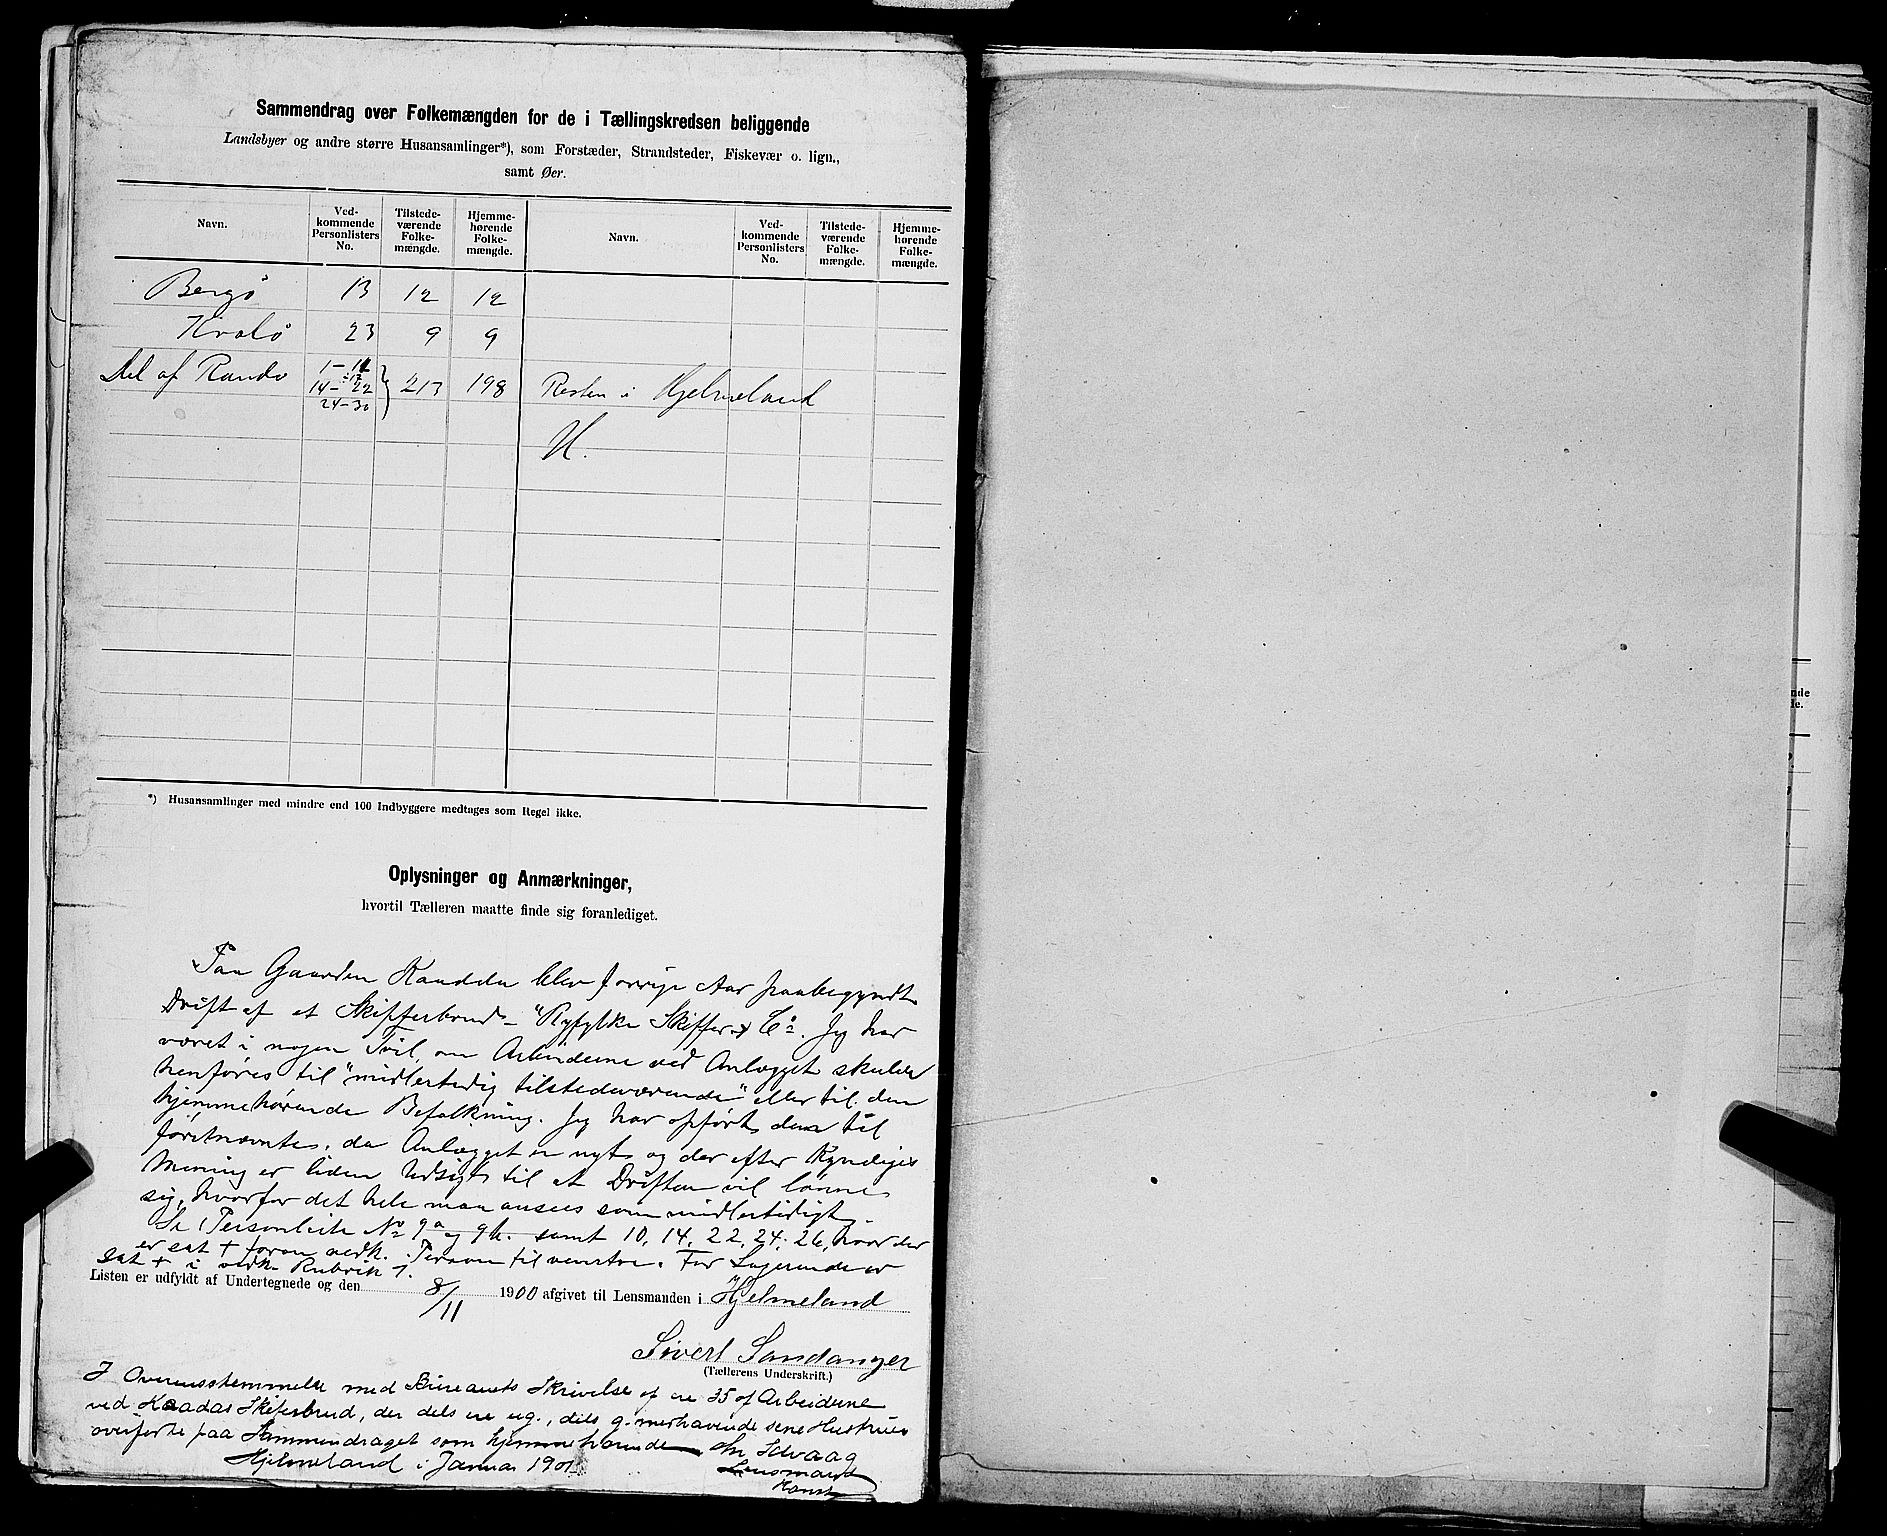 Sammendrag over Folkemængden for de i Tællingskredsen beliggende
Landsbyer og andre større Husansamlinger*), som Forstæder, Strandsteder, Fiskevær o. lign.,
samt Øer.
Navn. Ved-kommende Personlisters No. Tilstede-værende Folke-mængde. Hjemme-hørende Folke-mængde. Navn. Ved-kommende Personlisters No. Tilstede-værende Folke-mængde. Hjemme-hørende Folke-mængde.
Bergø 13 12 12
Hvalø 23 9 9
Del af Randø 1-11 14-22 24-30 } 213 198 Resten i Hjelmeland
H.
*) Husansamlinger med mindre end 100 Indbyggere medtages som Regel ikke.
Oplysninger og Anmærkninger,
hvortil Tælleren maatte finde sig foranlediget.
Paa Gaarden Kaadda blev forrige Aar paabegyndt
Drift af et Skifferbrud - "Ryfylke Skiffer & Co. Jeg har
været i nogen Tvil, om Arbeiderne ved Anlægget skulde
henføres til "midlertidig tilstedeværende" eller til den
hjemmehørende Befolkning. Jeg har opført dem til
førstnævnte, da Anlægget er nyt og der efter Kyndiges
Mening er liden Udsigt til at Driften vil lønne
sig, hvorfor det hele maa ansees som midlertidigt.
Se Personliste No 9a og 9b. samt 10, 14, 22, 24, 26, hvor der
er sat + foran vedk. Person til venstre. For Logerende er
sat + i vedk. Rubrik 7.
Listen er udfyldt af Undertegnede og den 8/11 1900 afgivet til Lensmanden i Hjelmeland
Sivert Sandanger
(Tællerens Underskrift.)
I Overensstemmelse med Bureauets Skrivelse af ere 35 af Arbeiderne
ved Kaadas Skiferbrud, der dels ere ug., dels g. medhavende sene Hustruer
overførte paa Sammendraget som hjemmehørende
Hjelmeland i Januar 1901
Lensmand
Konst.